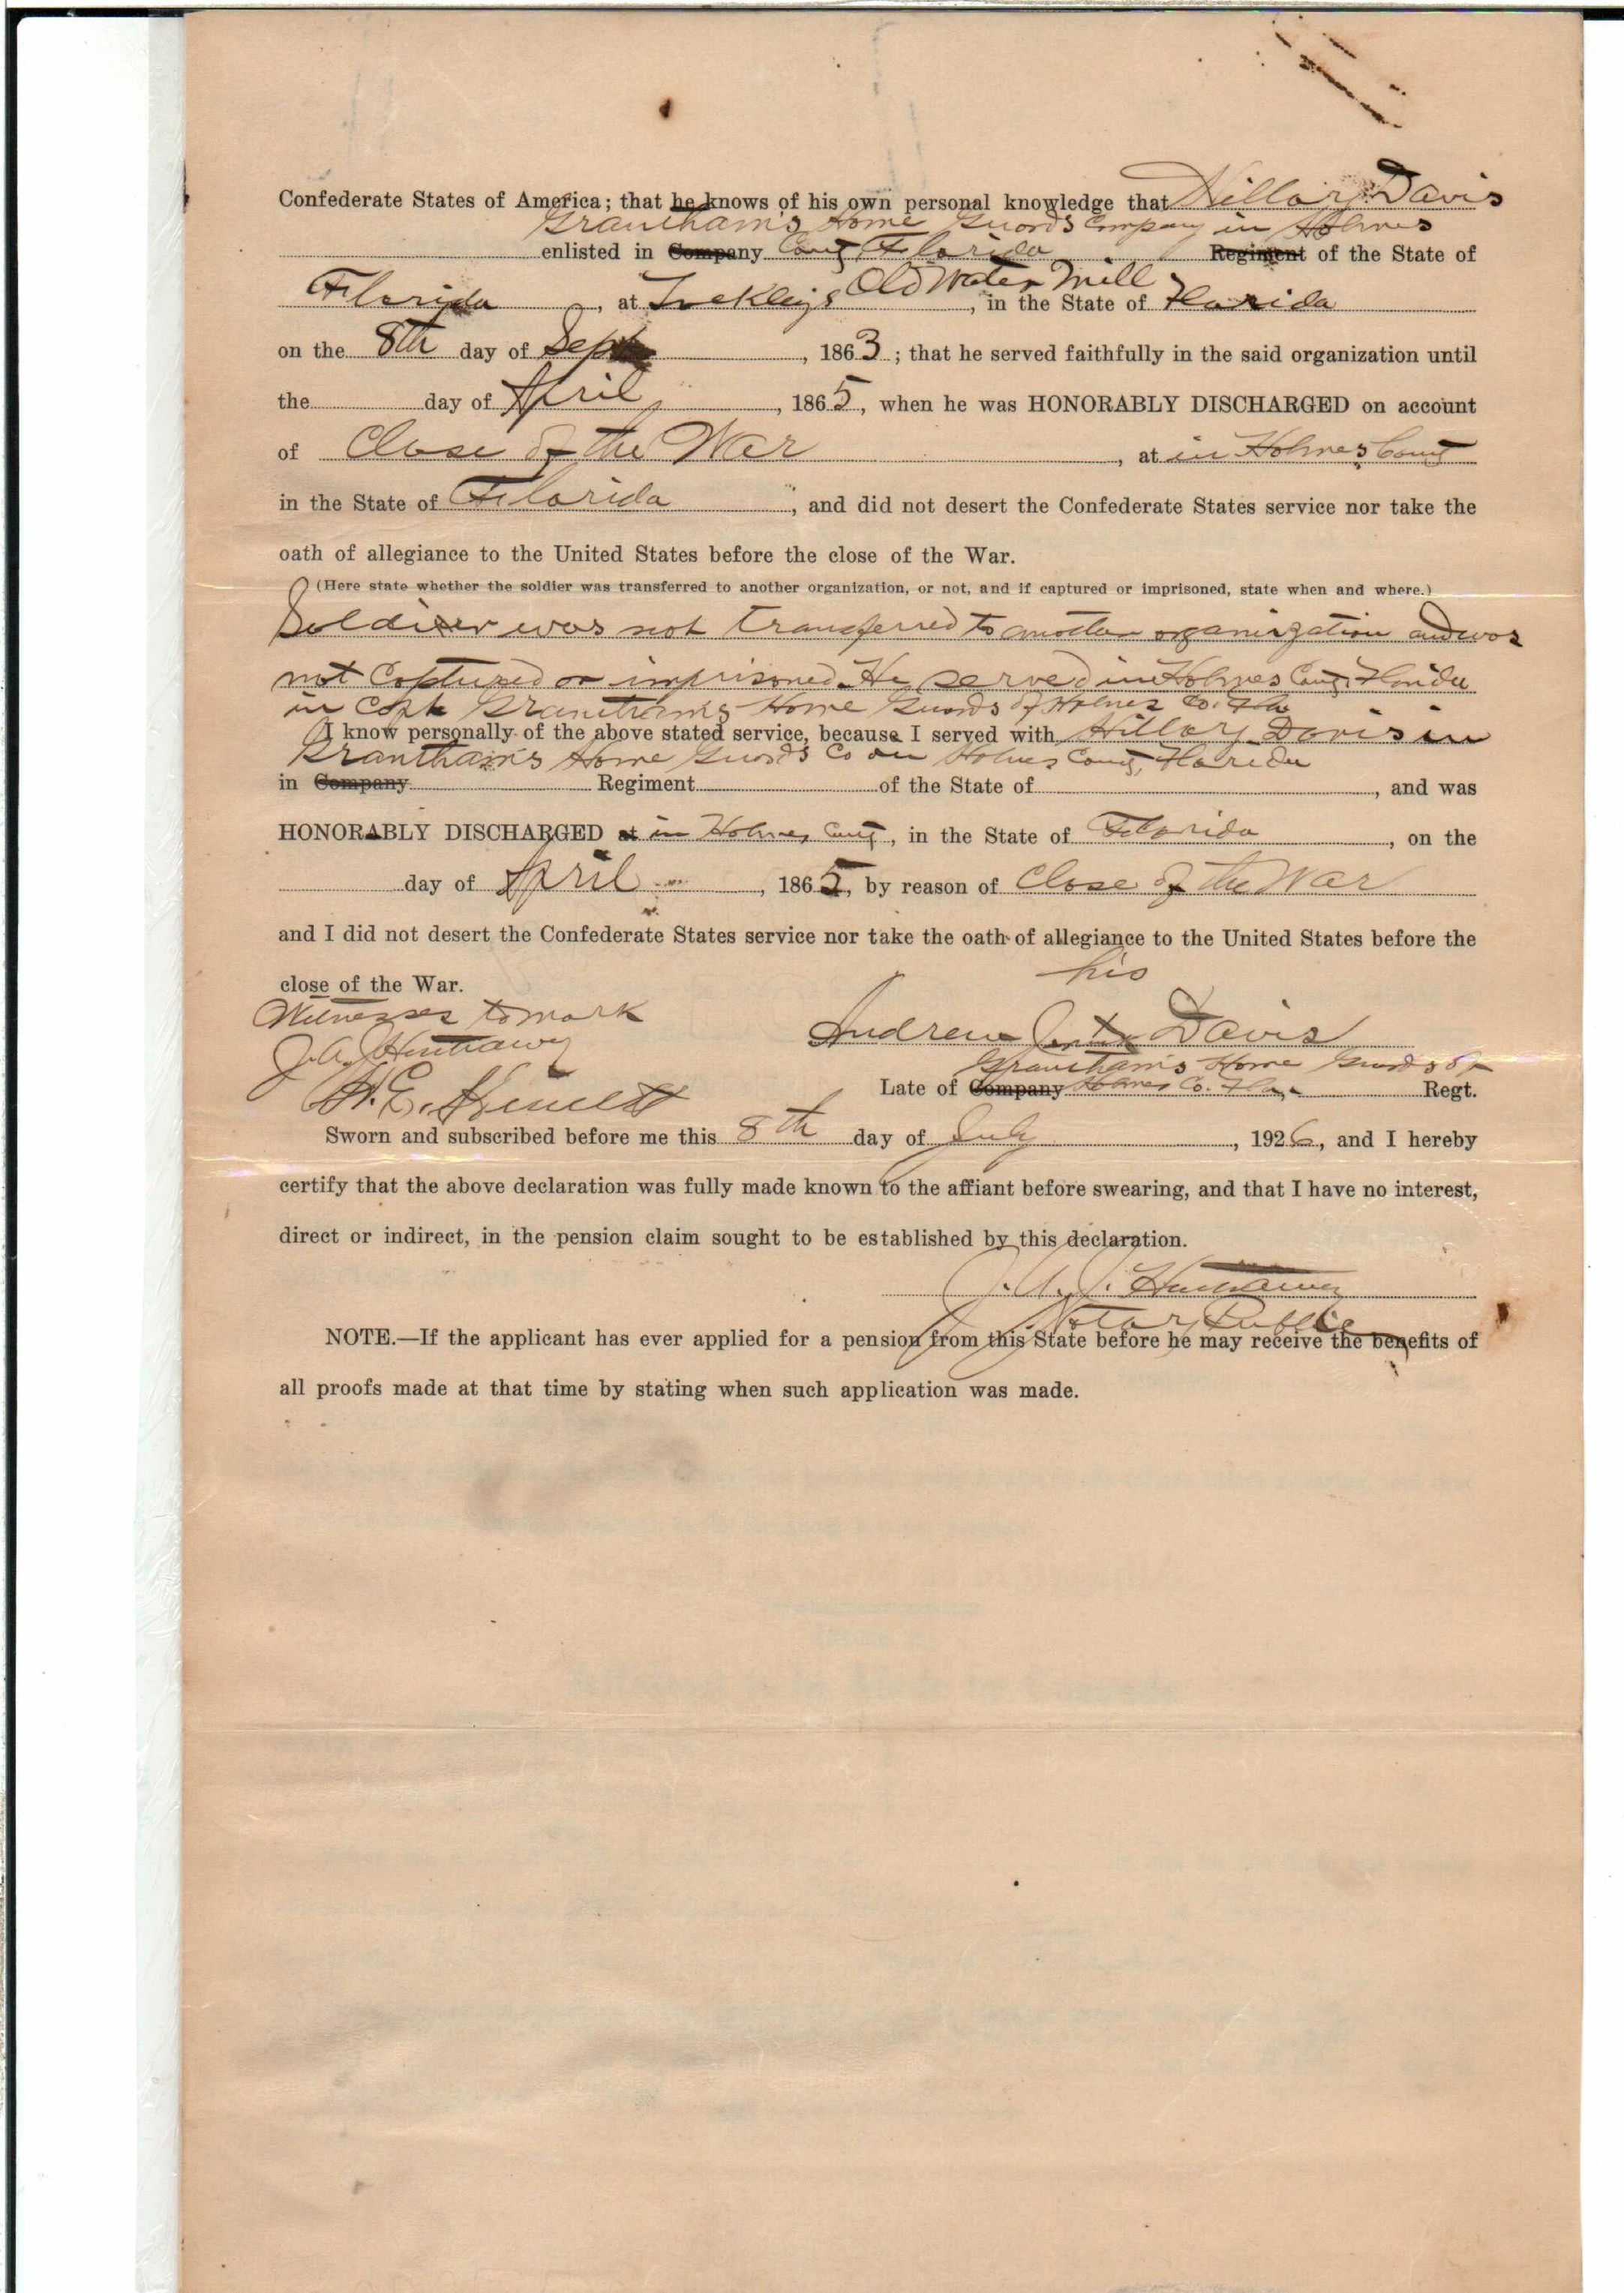 Confederate States of America; that he knows of his own personal knowledge that Hillary Davis
Grantham's Home Guards Company in Holmes
enlisted in Company County Florida Regiment of the State of
Old Water Mill
Florida, at in the State of Florida
on the 8th day of Sept, 1863; that he served faithfully in the said organization until
the day of April, 1865, when he was HONORABLY DISCHARGED on account
of Close of the War, at in Holmes County
in the State of Florida, and did not desert the Confederate States service nor take the
oath of allegiance to the United States before the close of the War.
(Here state whether the soldier was transferred to another organization, or not, and if captured or imprisoned, state when and where.)
Soldier was not transferred to another organization and was
not Captured or imprisoned. He served in Holmes County Florida
in Capt Grantham's Home Guards of Holmes Co. Fla
I know personally of the above stated service, because I served with Hillary Davis in
Grantham's Home Guards Co in Holmes County, Florida
in Company Regiment of the State of, and was
HONORABLY DISCHARGED at in Holmes County, in the State of Florida, on the
day of April, 1865, by reason of Close of the War
and I did not desert the Confederate States service nor take the oath of allegiance to the United States before the
close of the War.
his
Witnesses to mark
Andrew Davis
Grantham's Home Guards of
Late of Company Holmes Co. Fla. Regt.
Sworn and subscribed before me this 8th day of July, 1926, and I hereby
certify that the above declaration was fully made known to the affiant before swearing, and that I have no interest,
direct or indirect, in the pension claim sought to be established by this declaration.
Notary Public
NOTE.—If the applicant has ever applied for a pension from this State before he may receive the benefits of
all proofs made at that time by stating when such application was made.